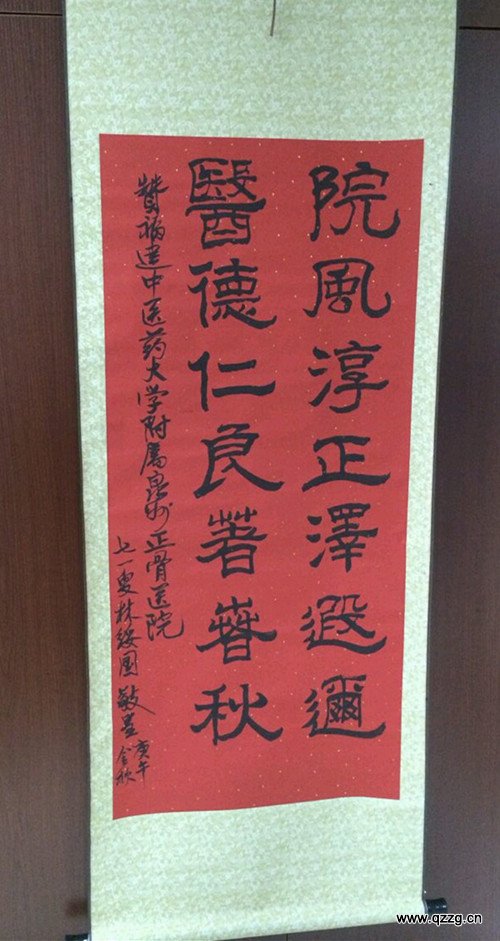 院風淳正澤遐邇
醫德仁良著春秋
贊福建中医药大学附属泉州正骨医院
七一叟林綏国敬墨
庚午
金秋
www.qzzg.cn